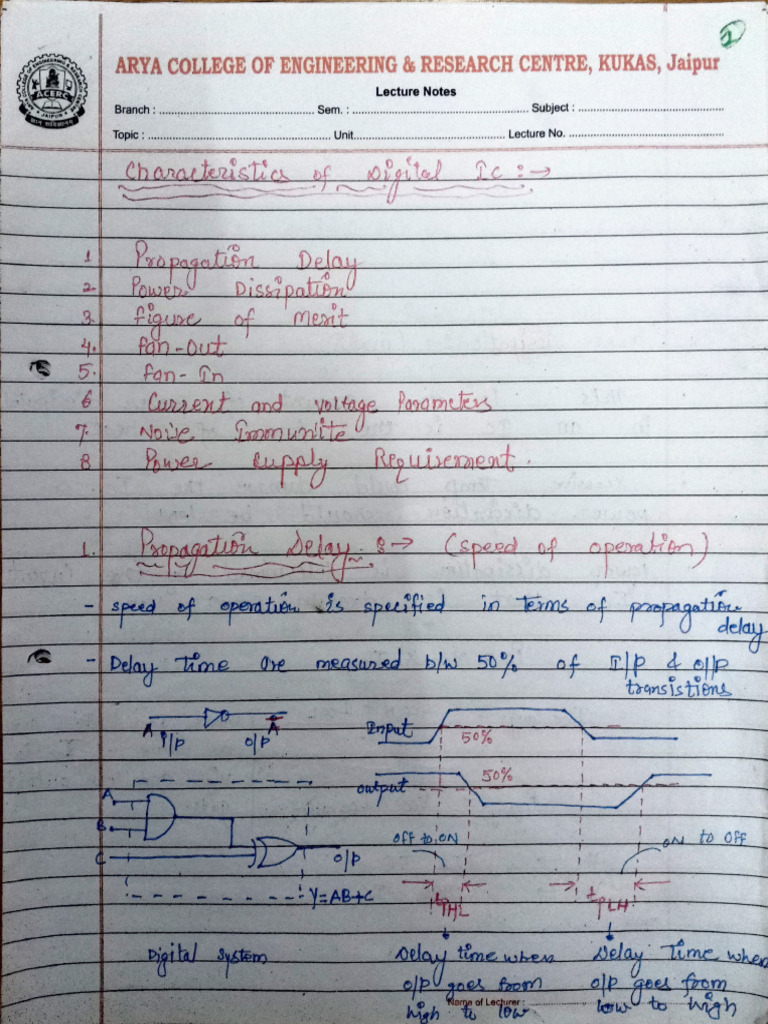 1
ARYA COLLEGE OF ENGINEERING & RESEARCH CENTRE, KUKAS, Jaipur
Lecture Notes
Branch : ........ Sem. : ........ Subject : ........
Topic : ........ Unit........ Lecture No. ........
ACERC
JAIPUR
Characteristics of Digital Ic :→
1 Propagation Delay
2. Power Dissipation
3. figure of merit
4. fan-out
5. fan-In
6 Current and voltage Parameters
7. Noise Immunite
8 Power supply Requirement.
1. Propagation Delay :→ (speed of operation)
- speed of operation is specified in terms of propagation
delay
- Delay time are measured b/w 50% of I/p & o/p
transistions
A I/P O/P A
Input 50%
output 50%
A
B
C
O/P
Y=AB+C
Digital System
OFF to ON
ON to OFF
tPHL
tPLH
Delay time when
o/p goes from
high to low
Delay Time when
o/p goes from
low to high
Name of Lecturer :